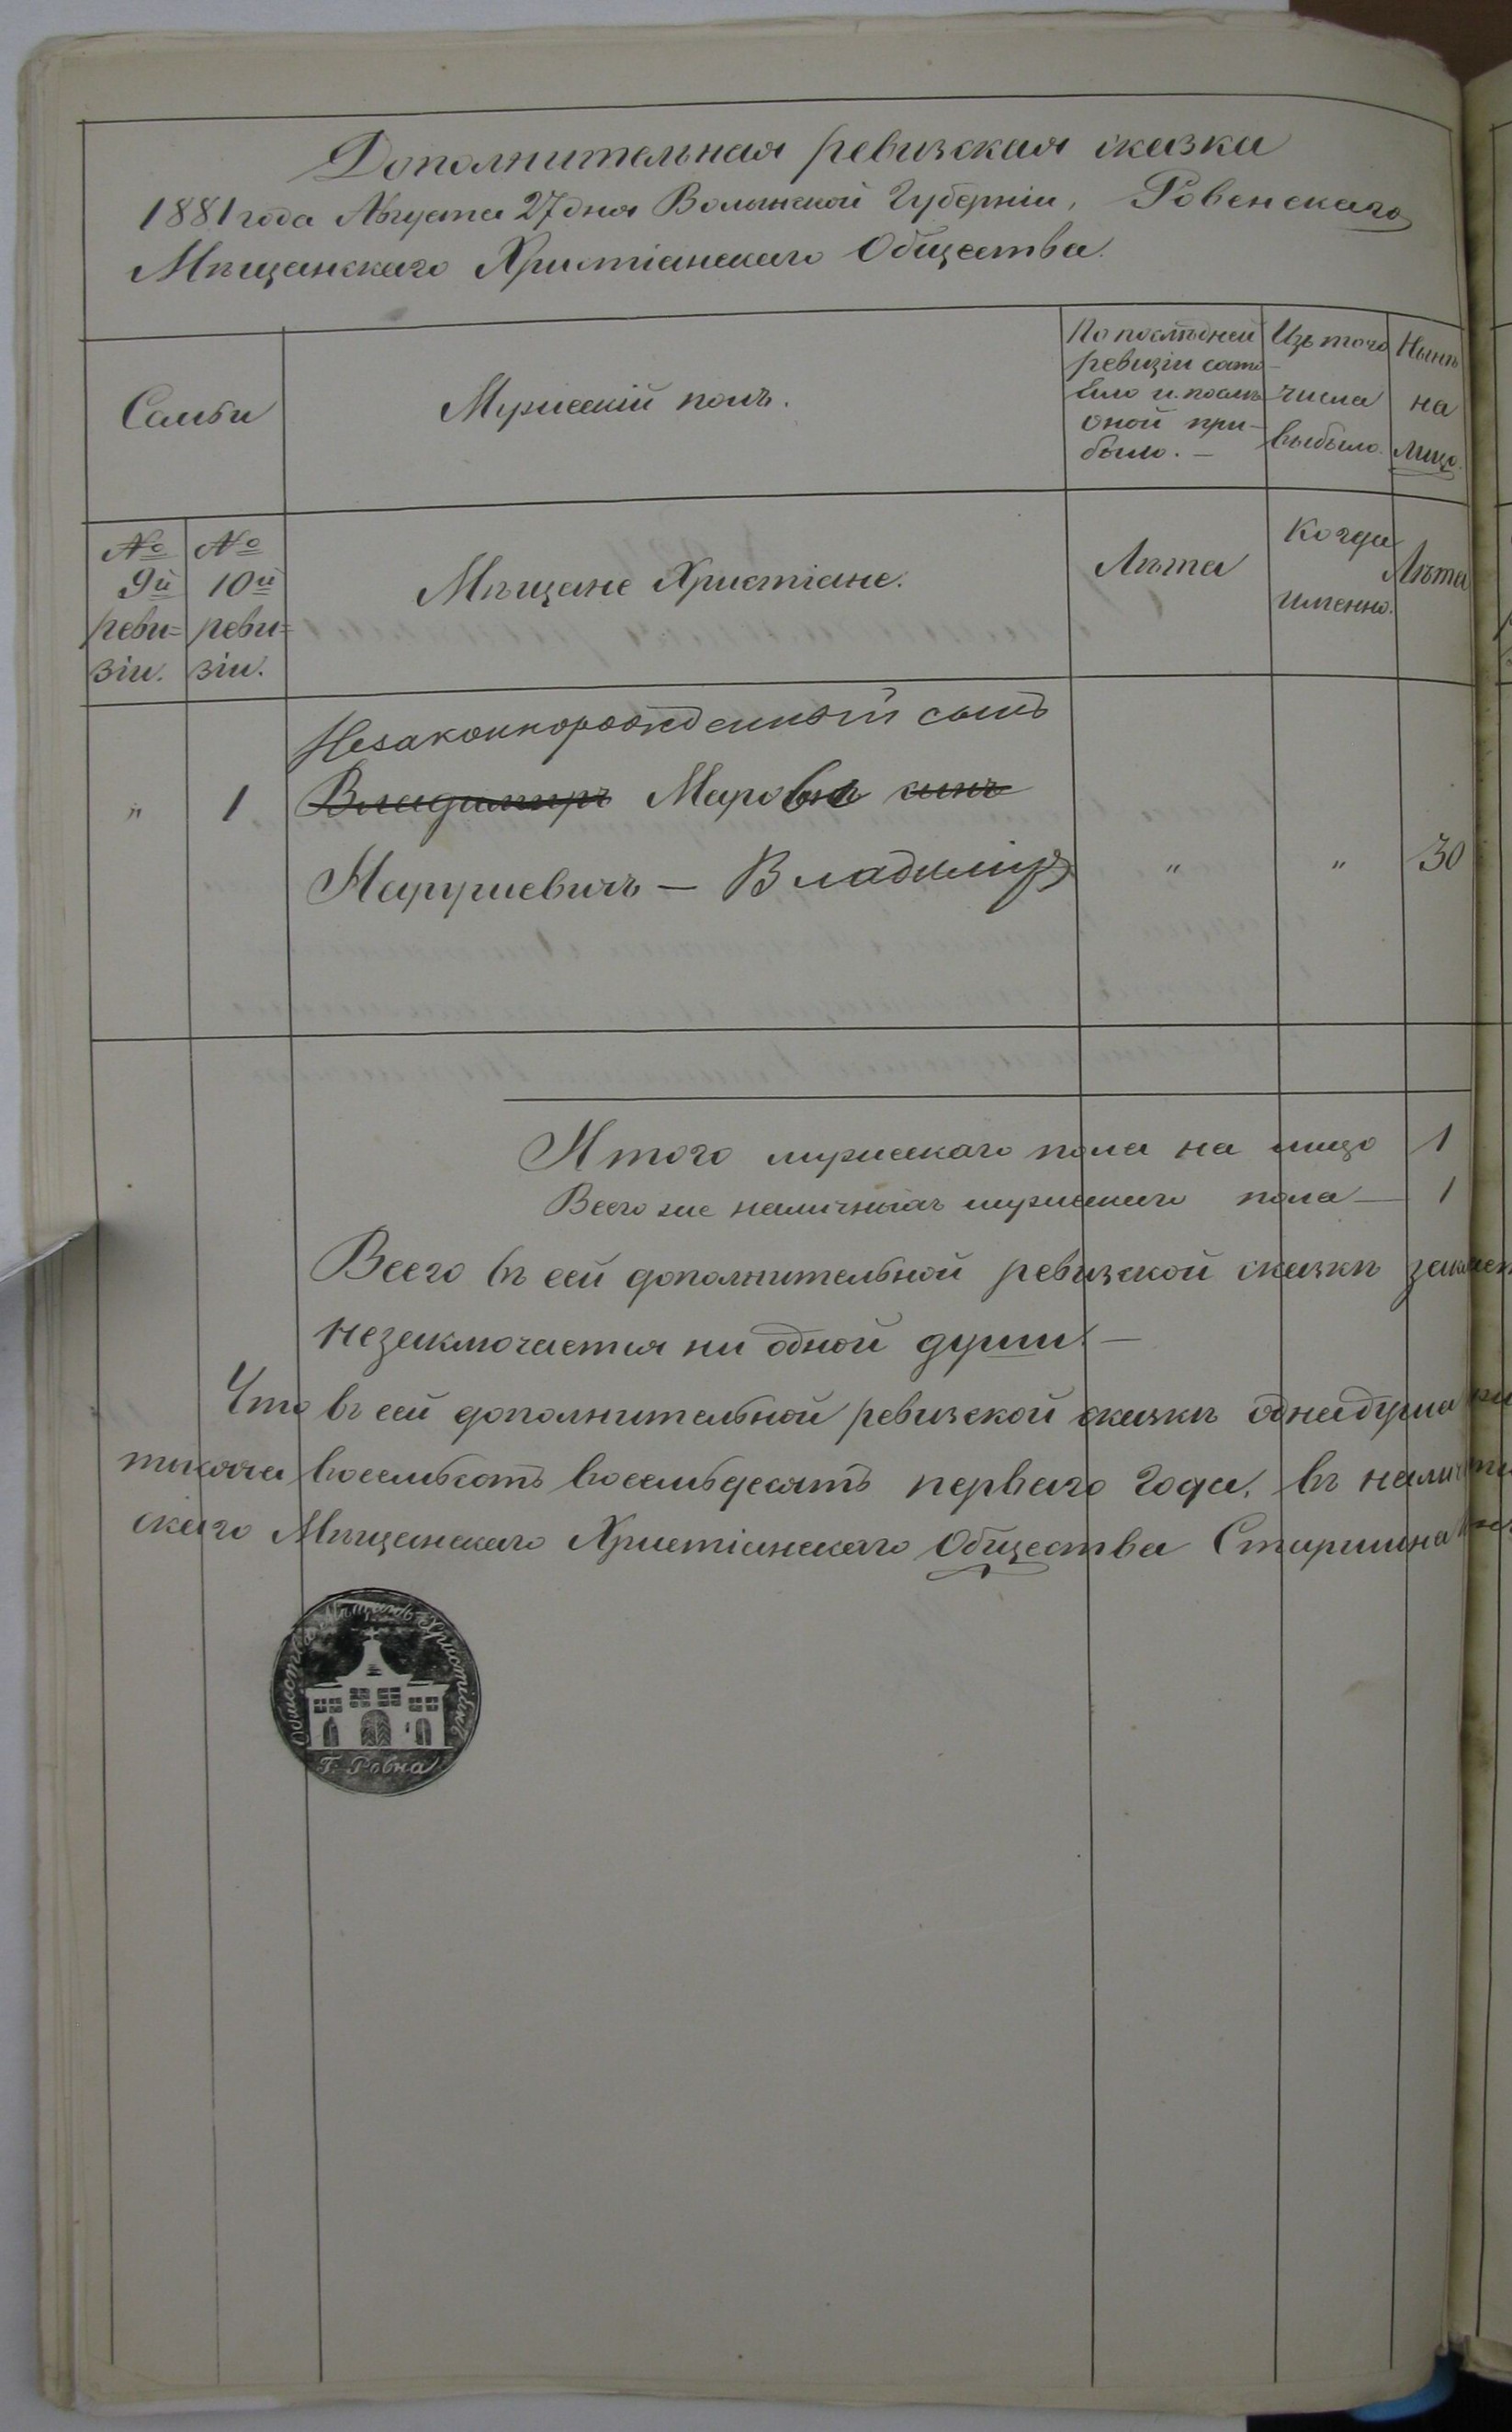 Дополнительная ревизская сказка
1881 года Августа 27 дня Волынской Губерніи, Ровенскаго
Мѣщанскаго Христіанскаго Общества.
Семьи
Мужескій полъ.
По послѣдней ревизіи состояло и послѣ оной прибыло. —
Изъ того числа выбыло.
Нынѣ на лицо.
№ 9й реви= зіи.
№ 10й реви= зіи.
Мѣщане Христіане.
Лѣта
Когда именно.
Лѣта
Незаконнорожденный сынъ
" 1 Владимиръ сынъ
— Владиміръ " " 30
Итого мужескаго пола на лицо 1
Всего же наличныхъ мужескаго пола — 1
Всего въ сей дополнительной ревизской сказкѣ
незаключается ни одной души. —
Что въ сей дополнительной ревизской сказкѣ одна душа
тысяча восемьсотъ восемьдесятъ перваго года, въ
скаго Мѣщанскаго Христіанскаго Общества Старшина
Общества Мѣщанъ Христіанъ
Г. Ровна